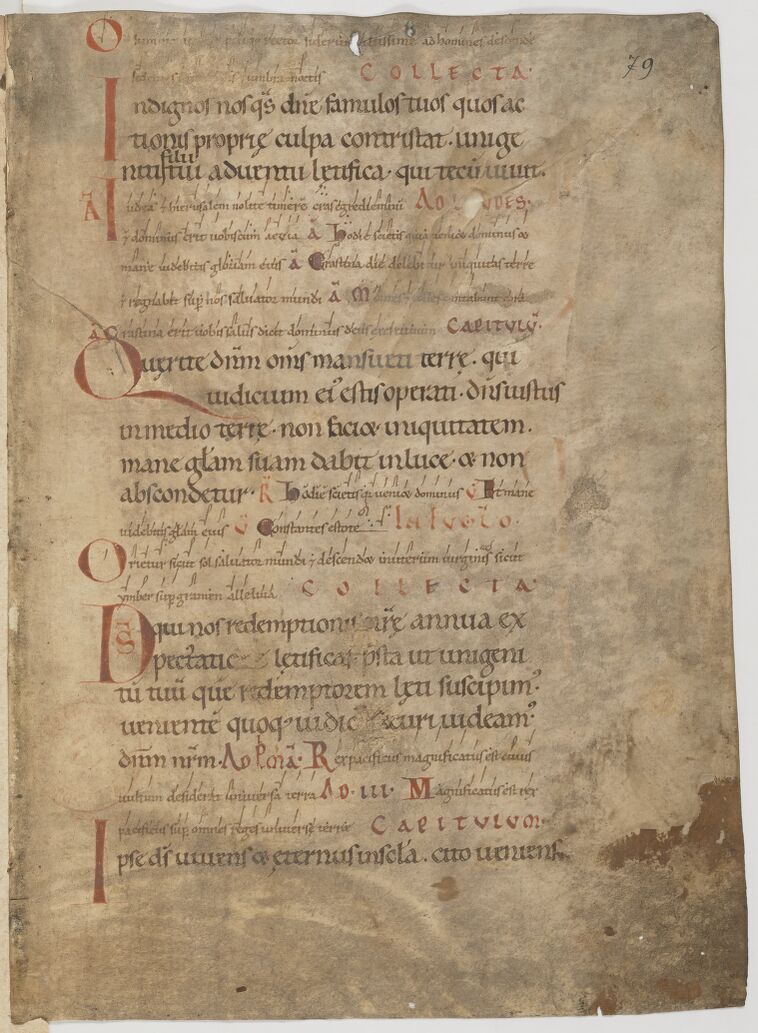 79
ad homines
COLLECTA
Indignos nos qs dne famulos tuos quos ac
tionis proprię culpa contristat. unige
filii
niti tui aduentu lętifica. qui tecū uiuit.
A Iudea & hierusalem nolite timere cras egrediemini AD LAUDES.
& dominus erit uobiscum aeuia A Hodie scietis quia ueniet dominus &
mane uidebitis gloriam eius A Crastina die delebitur iniquitas terre
& regnabit sup nos saluator mundi A
A Crastina erit uobis salus dicit dominus deus exercituum CAPITULŪ.
Quęrite dnm oms mansueti terrę. qui
iudicium ei' estis operati. dns iustus
in medio terrę. non faci& iniquitatem.
mane glam suam dabit in luce. & non
abscondetur. R Hodie scietis qi ueni& dominus V Et mane
uidebitis glam eius V Constantes estote
Orietur sicut sol saluator mundi & descend& in uterum uirginis sicut
ymber sup gramen alleluia COLLECTA
DS qui nos redemptionis nrę annua ex
pectatione lętificas psta ut unigeni
tū tuū que redemptorem lęti suscipim'.
uenientē quoq; iudicē securi uideam'.
dnm nrm. AD PMĀ. Rex pacificus magnificatus est cuius
uultum desiderat uniuersa terra AD. III. Magnificatus est rex
pacificus sup omnes reges uniuerse terre CAPITULUM
Ipse ds uiuens & ęternus in scla. cito ueniens.